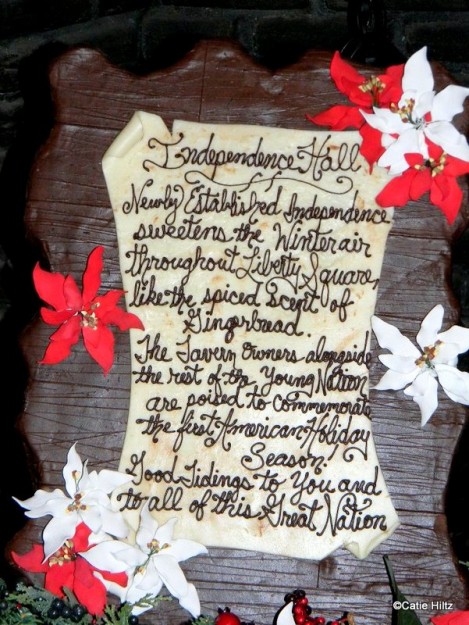 Independence Hall
Newly Established Independence
sweetens the Winter air
throughout Liberty Square,
like the spiced scent of
Gingerbread.
The Tavern Owners alongside
the rest of the Young Nation
are poised to commemorate
the first American Holiday
Season.
Good Tidings to You and
to all of this Great Nation
©Catie Hiltz